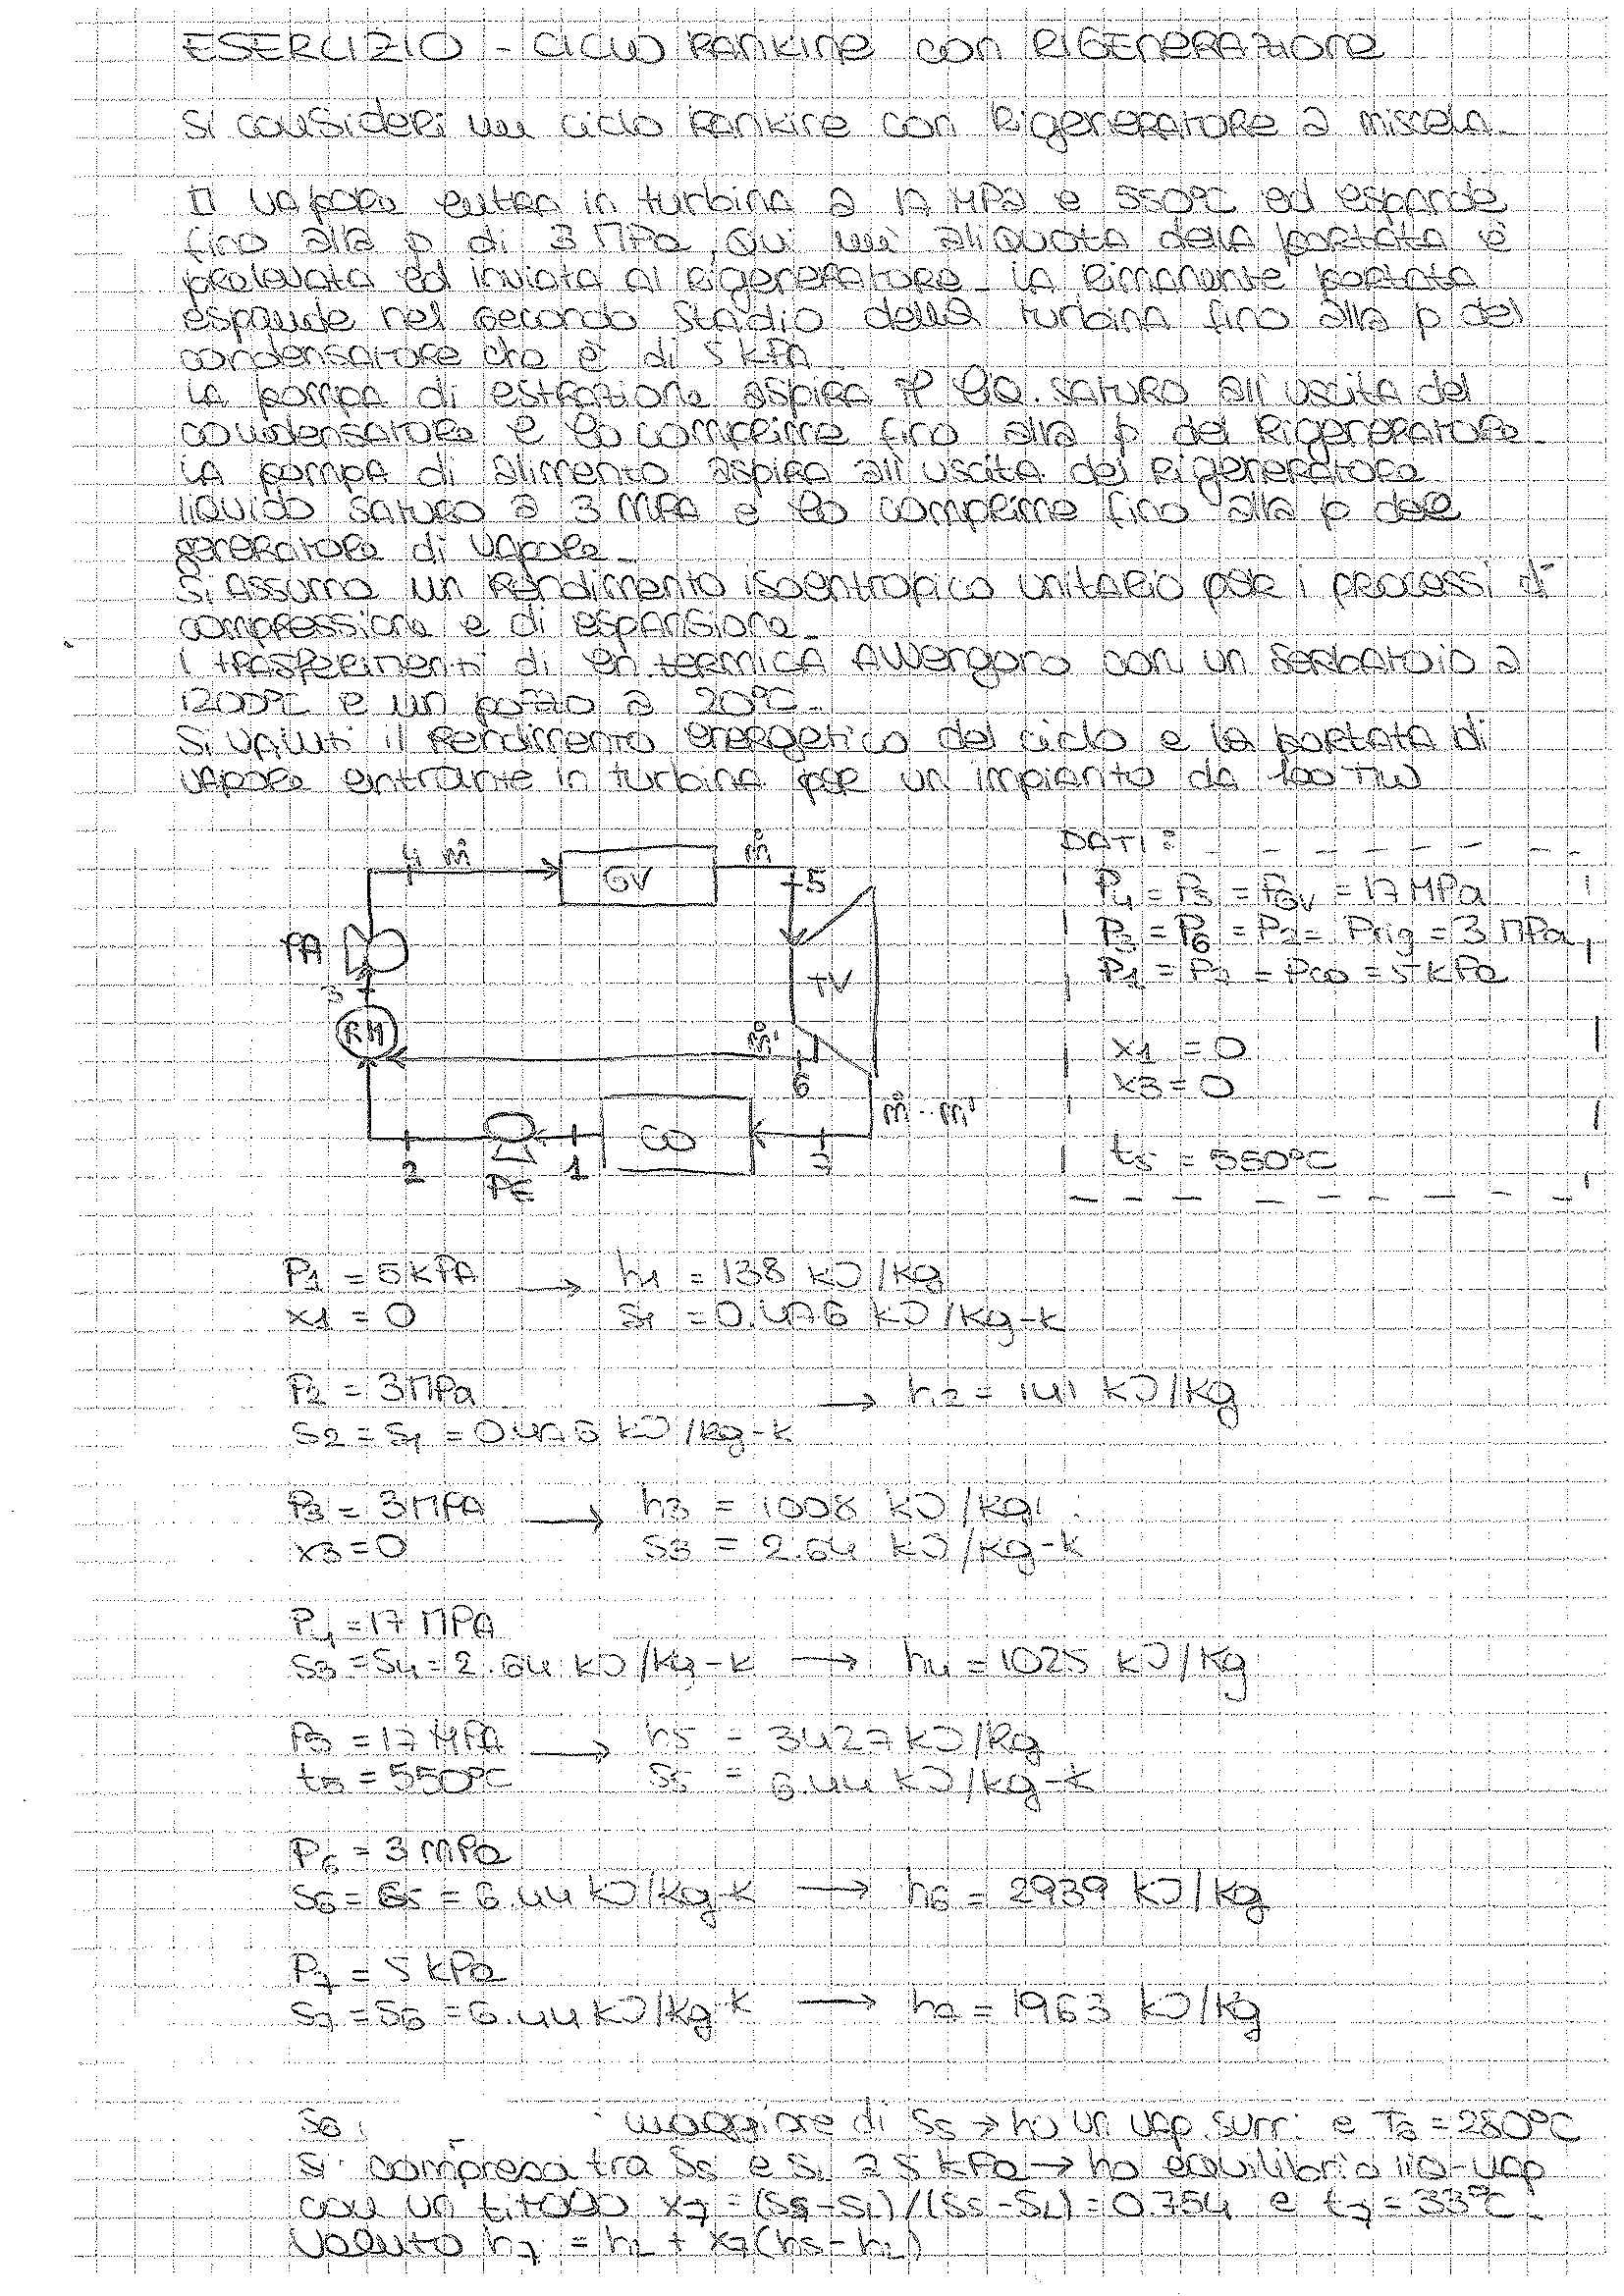 ESERCIZIO - CICLO RANKINE CON RIGENERAZIONE
Si consideri un ciclo Rankine con rigeneratore a miscela.
Il vapore entra in turbina a 17 MPa e 550°C ed espande
fino alla p di 3 MPa. Qui un'aliquota della portata è
prelevata ed inviata al rigeneratore. La rimanente portata
espande nel secondo stadio della turbina fino alla p del
condensatore che è di 5 kPa.
La pompa di estrazione aspira il liq. saturo all'uscita del
condensatore e lo comprime fino alla p del rigeneratore.
La pompa di alimento aspira all'uscita del rigeneratore
liquido saturo a 3 MPa e lo comprime fino alla p del
generatore di vapore.
Si assuma un rendimento isoentropico unitario per i processi di
compressione e di espansione.
I trasferimenti di en termica avvengono con un serbatoio a
1200°C e un pozzo a 20°C.
Si valuti il rendimento energetico del ciclo e la portata di
vapore entrante in turbina per un impianto da 100 MW
4 ṁ GV ṁ 5
PA 3 RM TV ṁ' 6
2 PE 1 CO 7 ṁ - ṁ'
DATI:
P4 = P5 = PGV = 17 MPa
P3 = P6 = P2 = Prig = 3 MPa
P1 = P7 = Pco = 5 kPa
x1 = 0
x3 = 0
t5 = 550°C
P1 = 5 kPA → h1 = 138 kJ/kg
x1 = 0 s1 = 0.476 kJ/kg-k
P2 = 3 MPa → h2 = 141 kJ/kg
s2 = s1 = 0.476 kJ/kg-k
P3 = 3 MPA → h3 = 1008 kJ/kg
x3 = 0 s3 = 2.64 kJ/kg-k
P4 = 17 MPA
s3 = s4 = 2.64 kJ/kg-k → h4 = 1025 kJ/kg
P5 = 17 MPA → h5 = 3427 kJ/kg
t5 = 550°C s5 = 6.44 kJ/kg-k
P6 = 3 MPa
s6 = s5 = 6.44 kJ/kg-k → h6 = 2939 kJ/kg
P7 = 5 kPa
s7 = s6 = 6.44 kJ/kg-k → h7 = 1963 kJ/kg
s6 maggiore di ss → ho un vap. surr. e T6 = 280°C
s compresa tra ss e sl a 5 kPa → ho equilibrio liq-vap
con un titolo x7 = (s7-sl)/(ss-sl) = 0.754 e t7 = 33°C.
Valuto h7 = hl + x7(hs-hl)